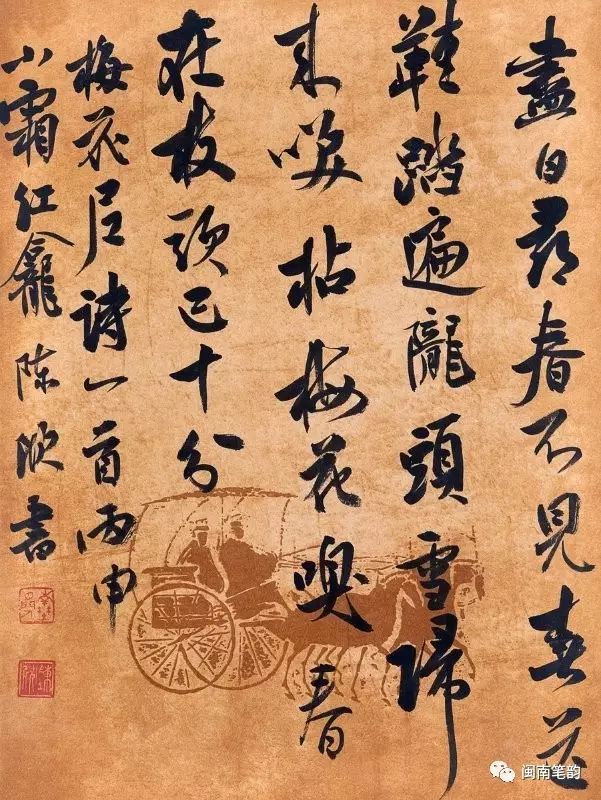 盡日尋春不見春芒
鞋踏遍隴頭雪歸
来咲拈梅花嗅春
在枝頭已十分
梅花尼诗一首丙申
小霜红龕陈書
闽南笔韵